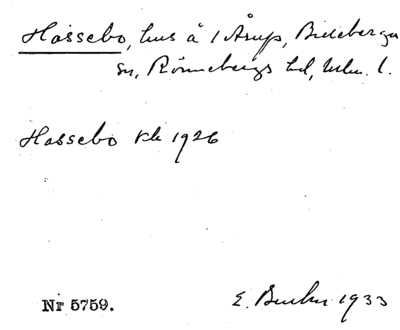 Hassebo, hus å 1 Årup, Billeberga
sn, Rönnebergs hd, Mlm. l.
Hassebo kb 1926
Nr 5759.
E. 1933